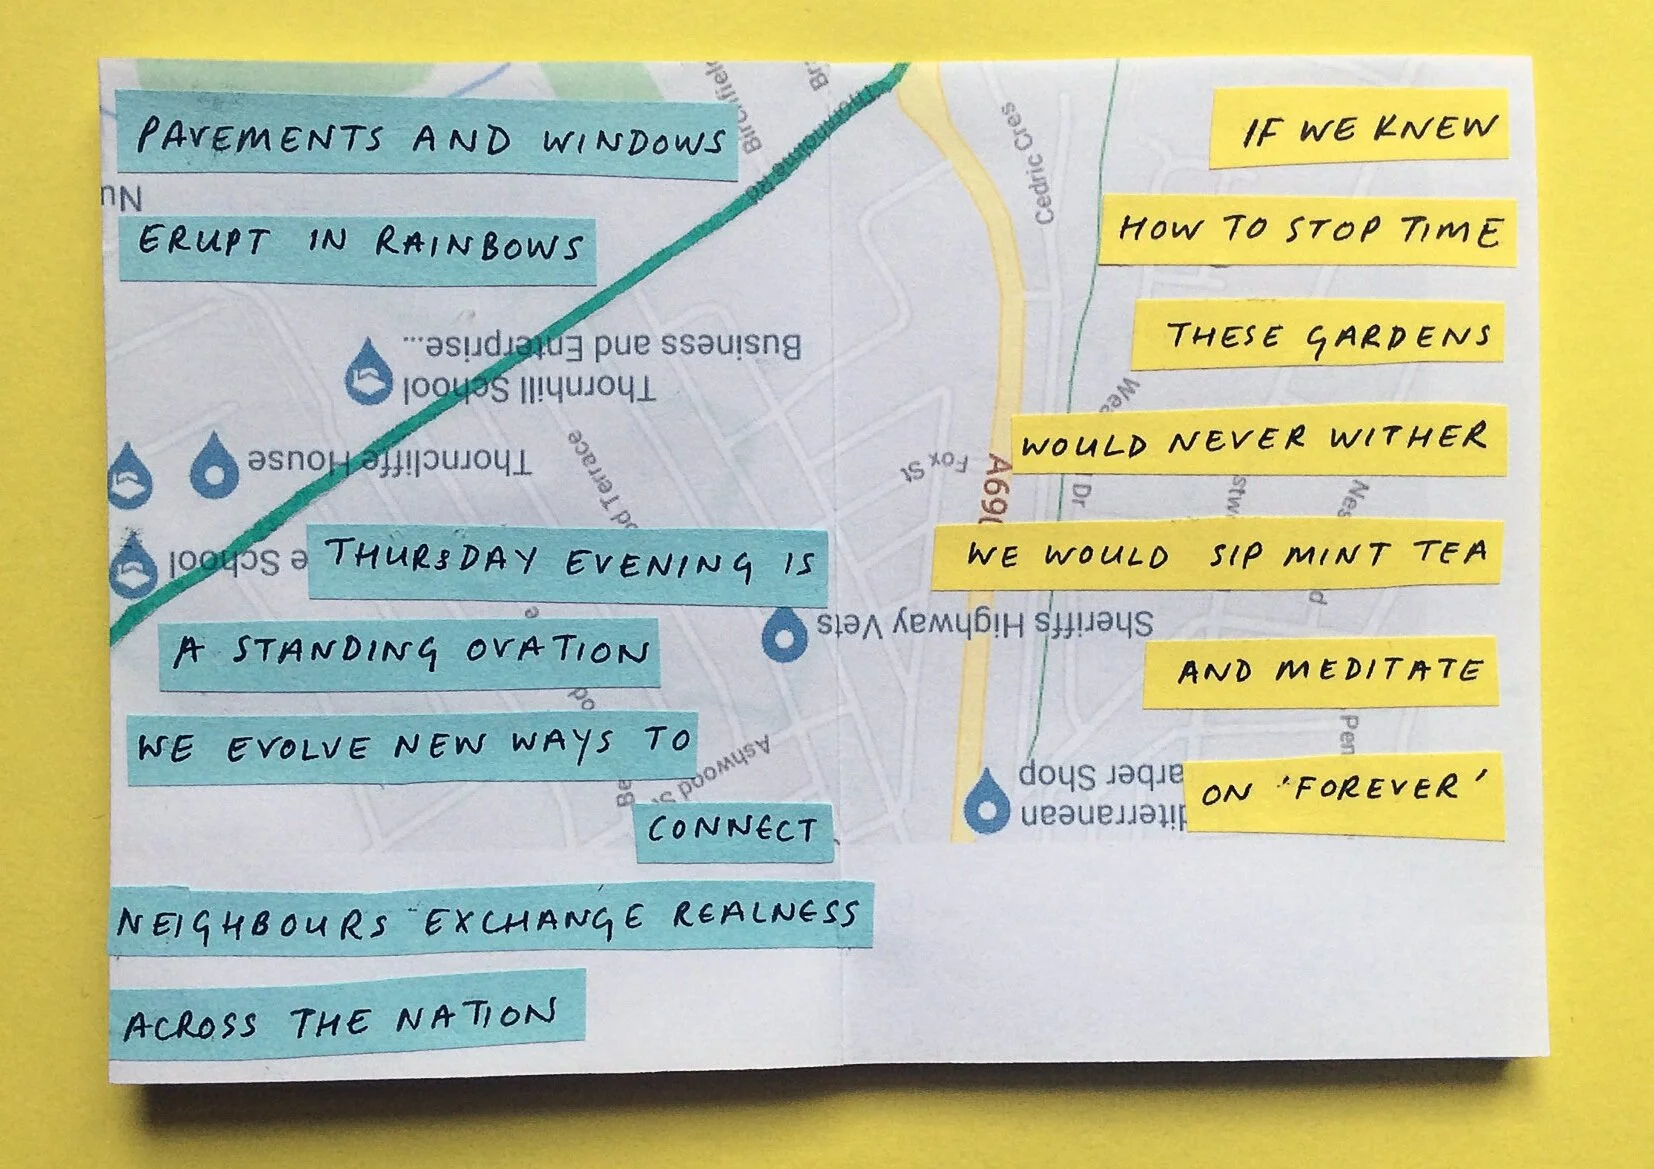 PAVEMENTS AND WINDOWS
ERUPT IN RAINBOWS
THURSDAY EVENING IS
A STANDING OVATION
WE EVOLVE NEW WAYS TO
CONNECT
NEIGHBOURS EXCHANGE REALNESS
ACROSS THE NATION
IF WE KNEW
HOW TO STOP TIME
THESE GARDENS
WOULD NEVER WITHER
WE WOULD SIP MINT TEA
AND MEDITATE
ON 'FOREVER'
Cedric Cres
Business and Enterprise...
Thornhill School
Thorncliffe House
School
Fox St
Dr
Sheriffs Highway Vets
Ashwood
Shop